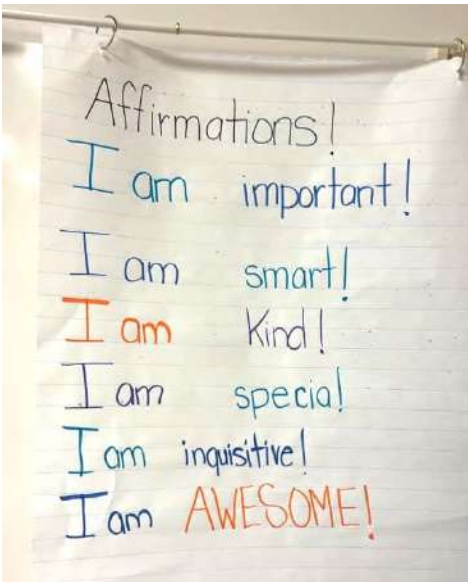 Affirmations!
I am important!
I am smart!
I am Kind!
I am special!
I am inquisitive!
I am AWESOME!